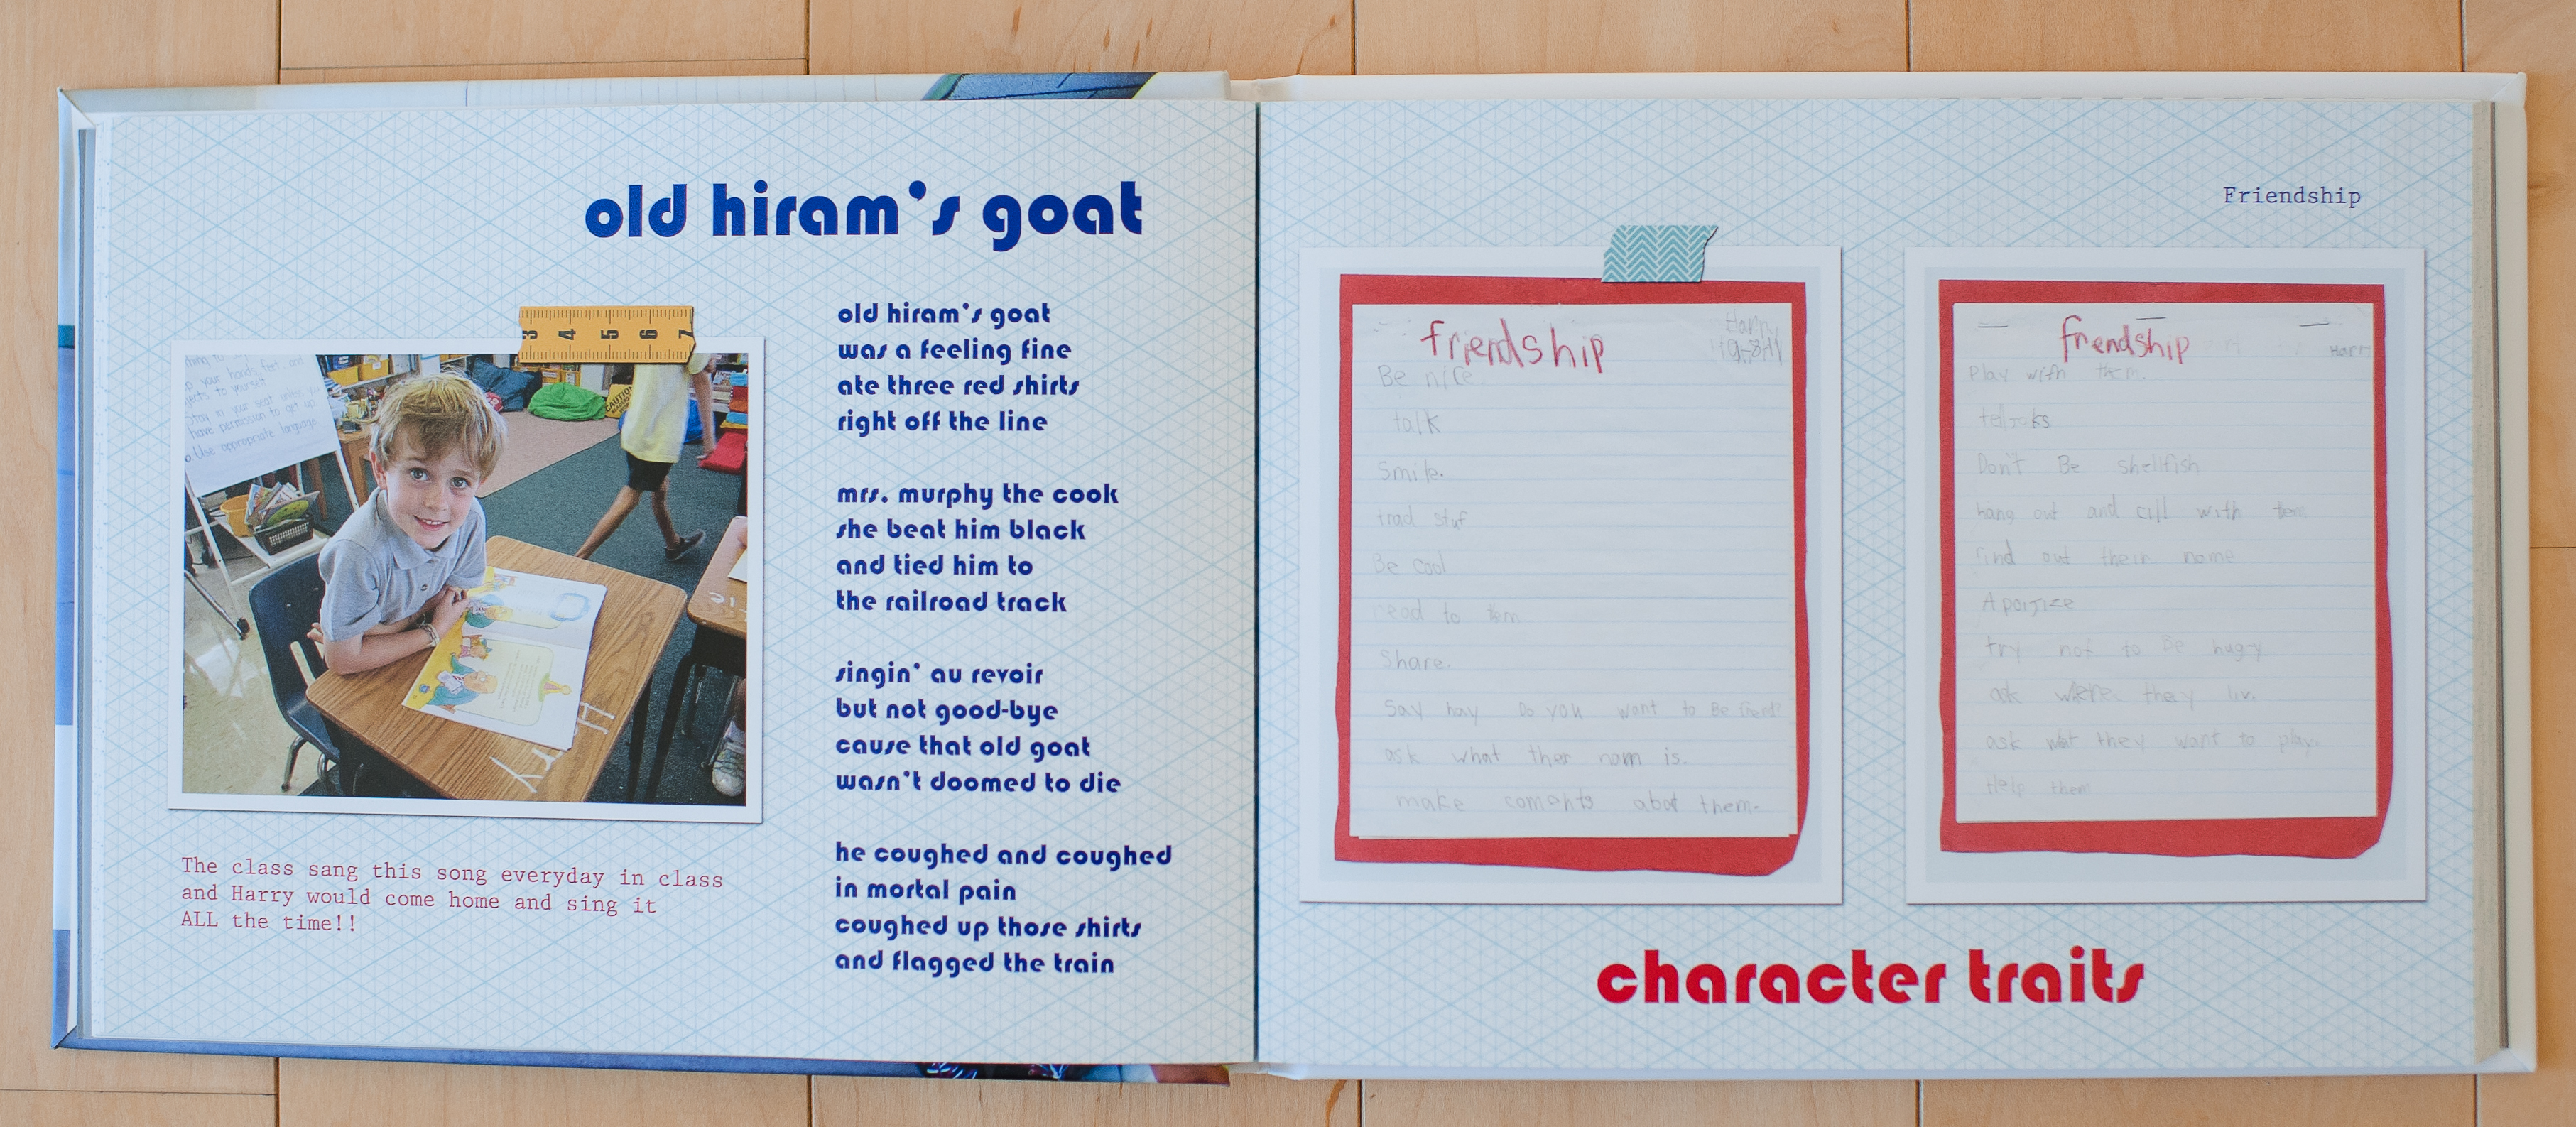 old hiram's goat
old hiram's goat
was a feeling fine
ate three red shirts
right off the line
mrs. murphy the cook
she beat him black
and tied him to
the railroad track
singin' au revoir
but not good-bye
cause that old goat
wasn't doomed to die
he coughed and coughed
in mortal pain
coughed up those shirts
and flagged the train
3 4 5 6 7
your hands feet and
to yourself
Stay in your seat unless
have permission to get up
Use appropriate language
CAUTION
Harry
The class sang this song everyday in class
and Harry would come home and sing it
ALL the time!!
Friendship
friendship
Harry
Be nice.
talk
Smile.
trad stuf
Be cool
read to tem
Share.
Say hay Do you want to Be friend?
ask what ther nam is.
make coments abot them.
friendship
Harr
Play with them.
tell joks
Don't Be shellfish
hang out and cill with tem
find out their name
Apoijize
try not to Be hugry
ask where they liv.
ask wat they want to play.
Help them
character traits